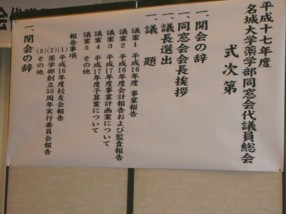 平成十七年度
名城大学薬学部同窓会代議員総会
式次第
一、開会の辞
一、同窓会会長挨拶
一、議長選出
一、議題
議案1 平成16年度 事業報告
議案2 平成16年度会計報告および監査報告
議案3 平成17年度事業計画案について
議案4 平成17年度予算案について
議案5 その他
報告事項
(1) 平成16年度校友会報告
(2) 薬学部創立50周年実行委員会報告
(3) その他
一、閉会の辞